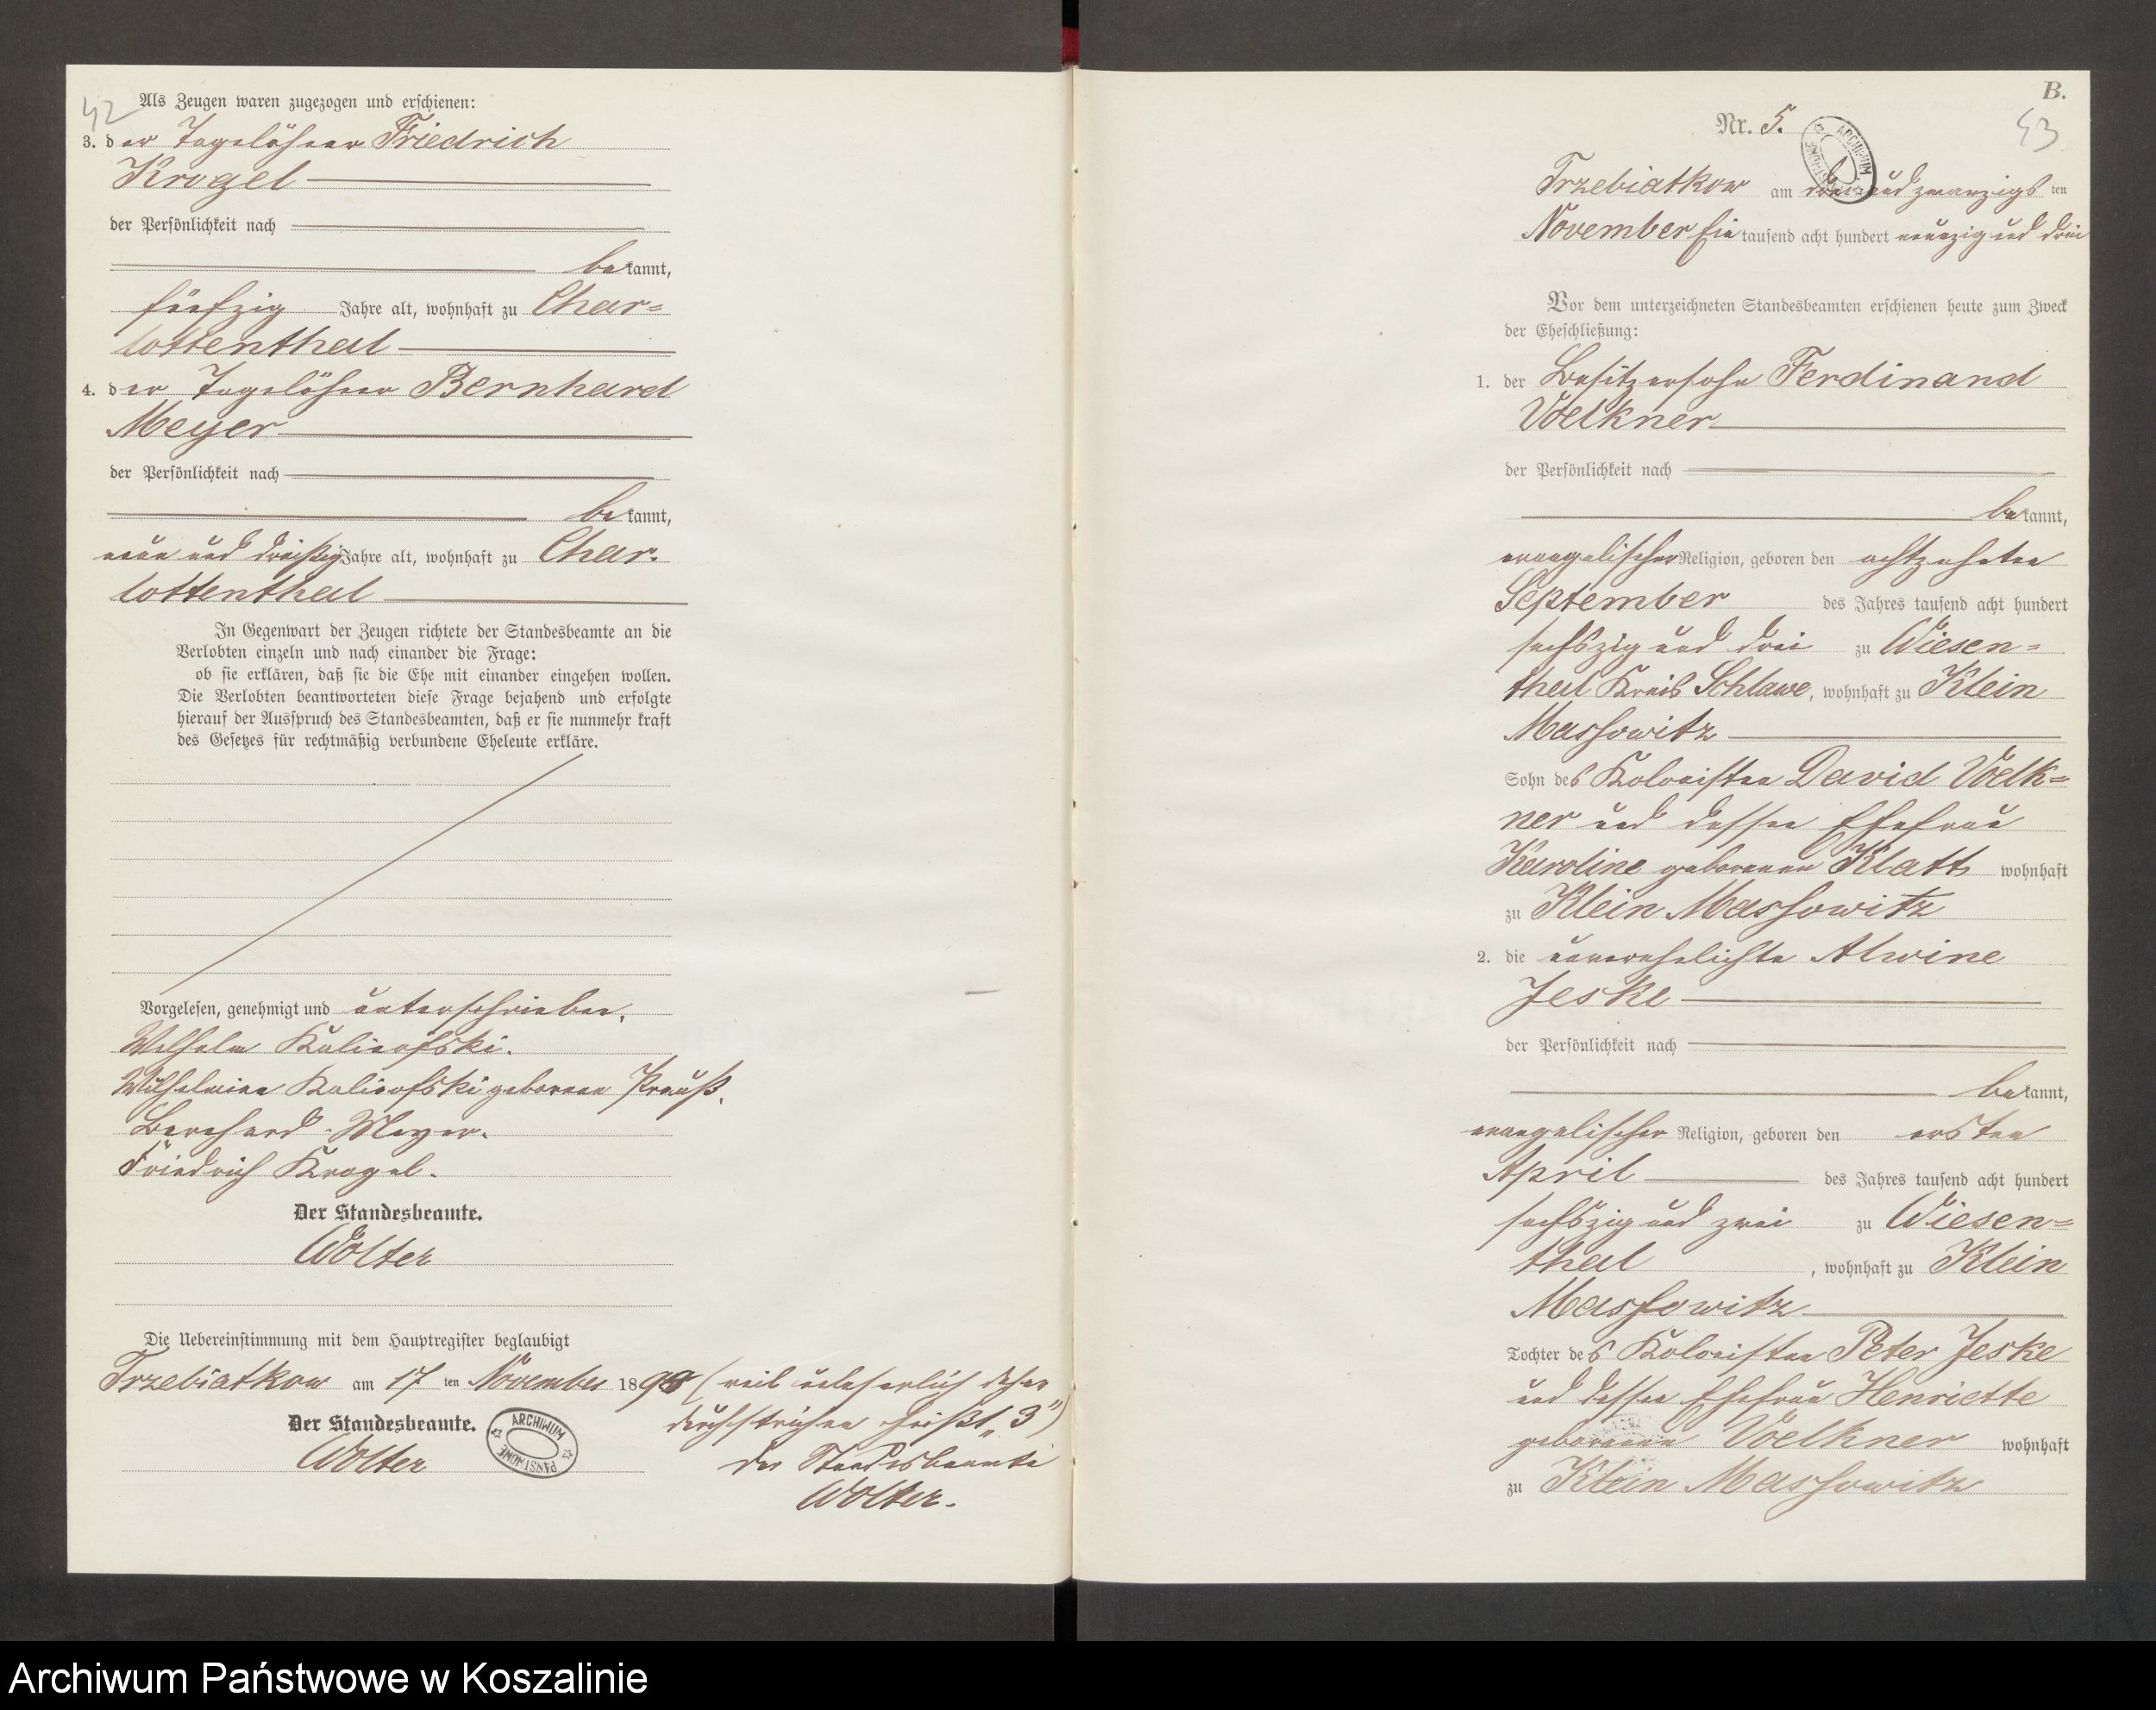 42
Als Zeugen waren zugezogen und erschienen:
3. der Tagelöhner Friedrich
Krogel
der Persönlichkeit nach
bekannt,
fünfzig Jahre alt, wohnhaft zu Char=
lottenthal
4. der Tagelöhner Bernhard
Meyer
der Persönlichkeit nach
bekannt,
neun und dreißig Jahre alt, wohnhaft zu Char-
lottenthal
In Gegenwart der Zeugen richtete der Standesbeamte an die
Verlobten einzeln und nach einander die Frage:
ob sie erklären, daß sie die Ehe mit einander eingehen wollen.
Die Verlobten beantworteten diese Frage bejahend und erfolgte
hierauf der Ausspruch des Standesbeamten, daß er sie nunmehr kraft
des Gesetzes für rechtmäßig verbundene Eheleute erkläre.
Vorgelesen, genehmigt und unterschrieben.
Wilhelm Kalinofski.
Wilhelmine Kalinofski geborene Preuß.
Bernhard Meyer.
Friedrich Krogel.
Der Standesbeamte.
Wolter
Die Uebereinstimmung mit dem Hauptregister beglaubigt
Trzebiatkow am 17 ten November 189 (weil unleserlich daher
durchstrichen heißt „3")
Der Standesbeamte.
der Standesbeamte
Wolter
Wolter.
ARCHIWUM PAŃSTWOWE
B.
53
Nr. 5.
ARCHIWUM PAŃSTWOWE
Trzebiatkow am drei und zwanzigs ten
November Ein tausend acht hundert neunzig und drei
Vor dem unterzeichneten Standesbeamten erschienen heute zum Zweck
der Eheschließung:
1. der Besitzersohn Ferdinand
Voelkner
der Persönlichkeit nach
bekannt,
evangelischer Religion, geboren den achtzehnten
September des Jahres tausend acht hundert
sechszig und drei zu Wiesen=
thal Kreis Schlawe, wohnhaft zu Klein
Massowitz
Sohn des Kolonisten David Voelk=
ner und dessen Ehefrau
Karoline geborenen Klatt wohnhaft
zu Klein Massowitz
2. die unverehelichte Alwine
Jeske
der Persönlichkeit nach
bekannt,
evangelischer Religion, geboren den ersten
April des Jahres tausend acht hundert
sechszig und zwei zu Wiesen=
thal, wohnhaft zu Klein
Massowitz
Tochter des Kolonisten Peter Jeske
und dessen Ehefrau Henriette
geborenen Voelkner wohnhaft
zu Klein Massowitz
Archiwum Państwowe w Koszalinie